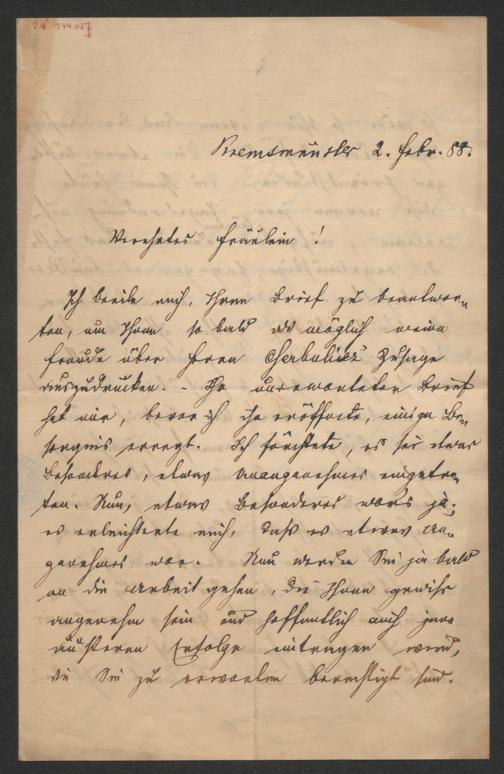 I. N. 144.057
Kremsmünster 2. Febr. 88.
Verehrtes Fräulein!
Ich beeile mich, Ihren Brief zu beantwor-
ten, um Ihnen so bald als möglich meine
Freude über Herrn Cherbuliez' Zusage
auszudrücken. - Ihr unerwarteter Brief
hat mir, bevor ich ihn eröffnete, einige Be-
sorgnis erregt. Ich fürchtete, es sei etwas
Besonderes, etwas Unangenehmes eingetre-
ten. Nun, etwas Besonderes war's ja;
es erleichterte mich, daß es etwas An-
genehmes war. Nun werden Sie ja bald
an die Arbeit gehen, die Ihnen gewiß
angenehm sein und hoffentlich auch jene
äußeren Erfolge eintragen wird,
die Sie zu erwarten berechtigt sind.